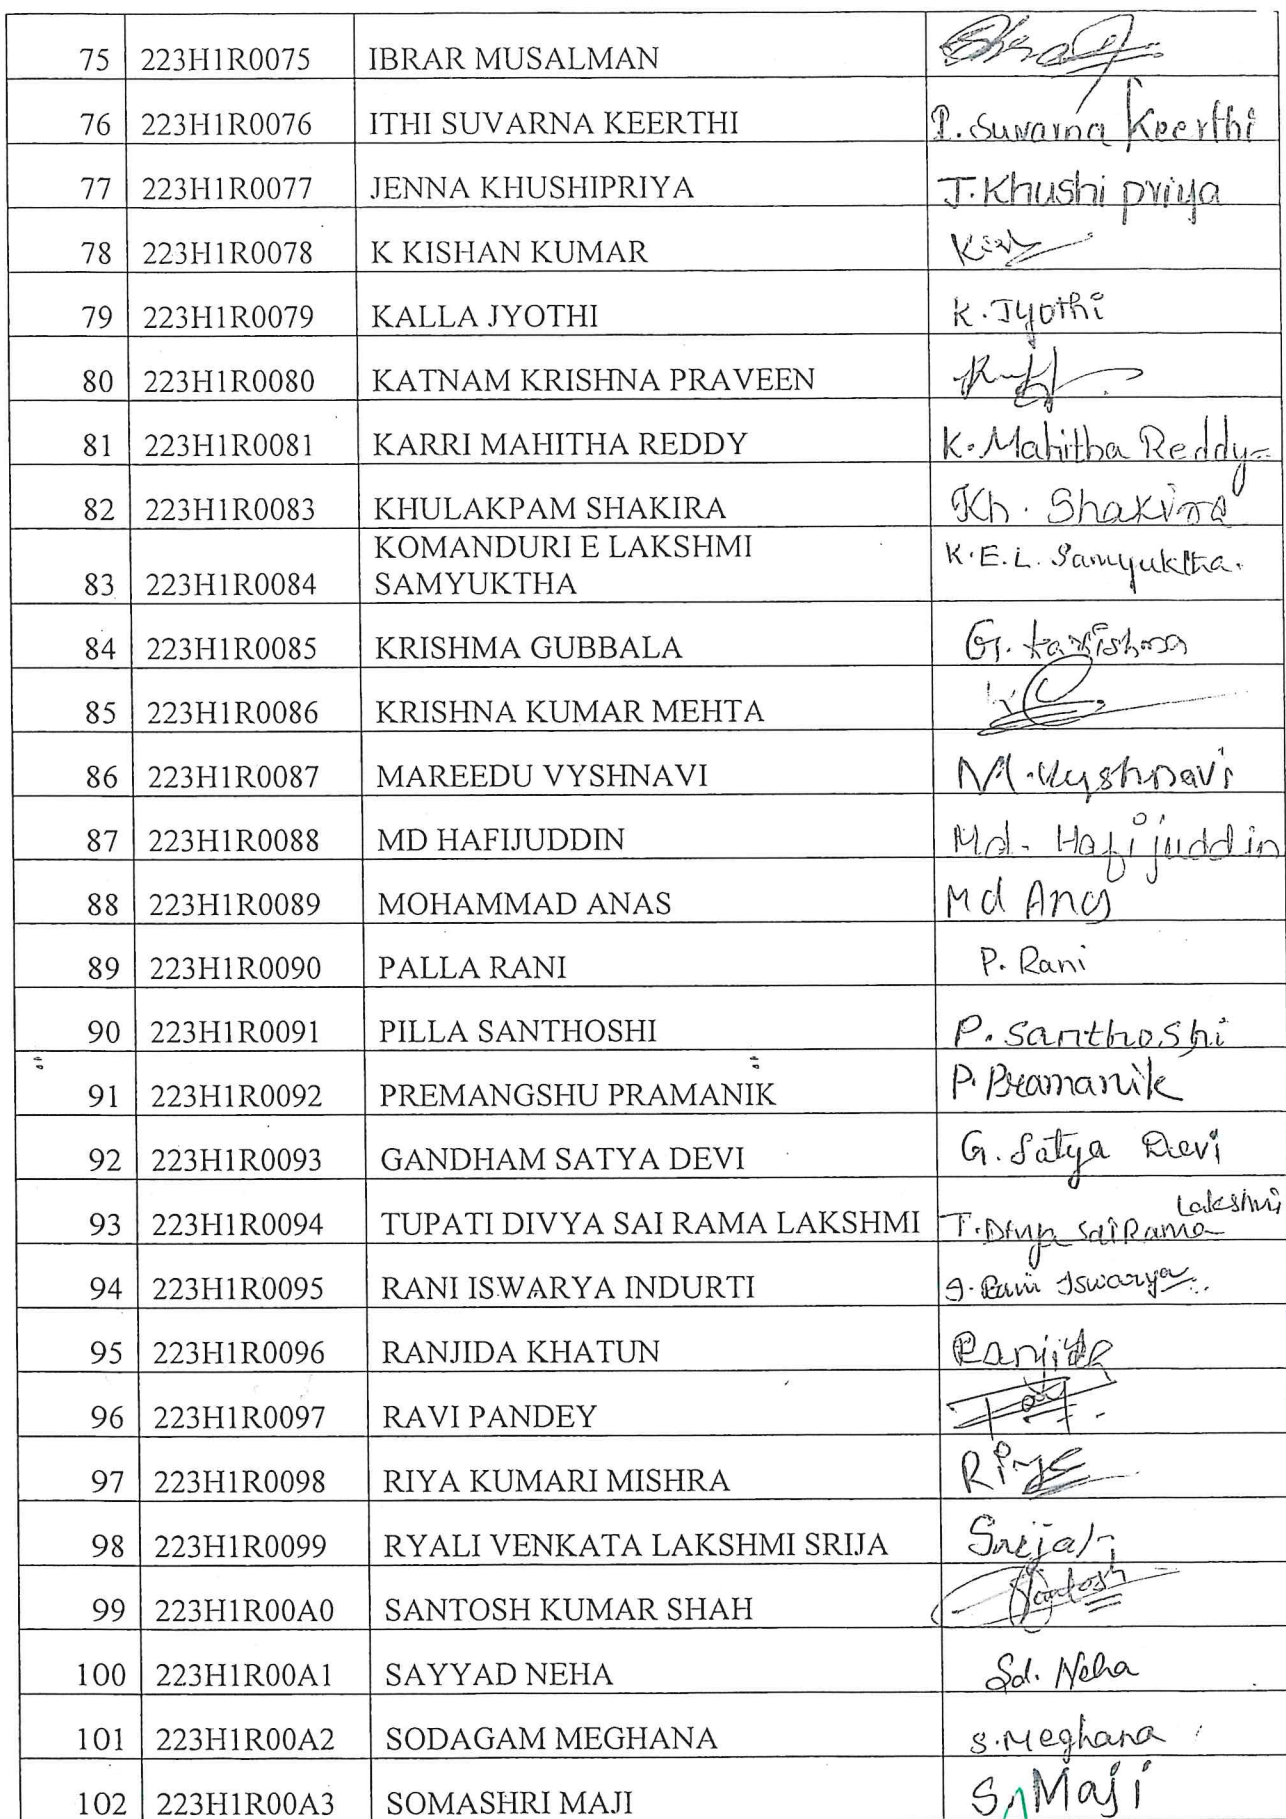 75 223H1R0075 IBRAR MUSALMAN
76 223H1R0076 ITHI SUVARNA KEERTHI I. Suvarna Keerthi
77 223H1R0077 JENNA KHUSHIPRIYA J. Khushi priya
78 223H1R0078 K KISHAN KUMAR
79 223H1R0079 KALLA JYOTHI K. Jyothi
80 223H1R0080 KATNAM KRISHNA PRAVEEN
81 223H1R0081 KARRI MAHITHA REDDY K. Mahitha Reddy
82 223H1R0083 KHULAKPAM SHAKIRA Kh. Shakira
KOMANDURI E LAKSHMI K.E.L. Samyuktha.
83 223H1R0084 SAMYUKTHA
84 223H1R0085 KRISHMA GUBBALA G.
85 223H1R0086 KRISHNA KUMAR MEHTA
86 223H1R0087 MAREEDU VYSHNAVI M. Vyshnavi
87 223H1R0088 MD HAFIJUDDIN Md. Hafijuddin
88 223H1R0089 MOHAMMAD ANAS Md Anas
89 223H1R0090 PALLA RANI P. Rani
90 223H1R0091 PILLA SANTHOSHI P. Santhoshi
91 223H1R0092 PREMANGSHU PRAMANIK P. Pramanik
92 223H1R0093 GANDHAM SATYA DEVI G. Satya Devi
93 223H1R0094 TUPATI DIVYA SAI RAMA LAKSHMI T. Divya Sai Rama Lakshmi
94 223H1R0095 RANI ISWARYA INDURTI I. Rani Iswarya
95 223H1R0096 RANJIDA KHATUN Ranjida
96 223H1R0097 RAVI PANDEY
97 223H1R0098 RIYA KUMARI MISHRA Riya
98 223H1R0099 RYALI VENKATA LAKSHMI SRIJA Srija
99 223H1R00A0 SANTOSH KUMAR SHAH Santosh
100 223H1R00A1 SAYYAD NEHA Sd. Neha
101 223H1R00A2 SODAGAM MEGHANA S. Meghana
102 223H1R00A3 SOMASHRI MAJI S. Maji